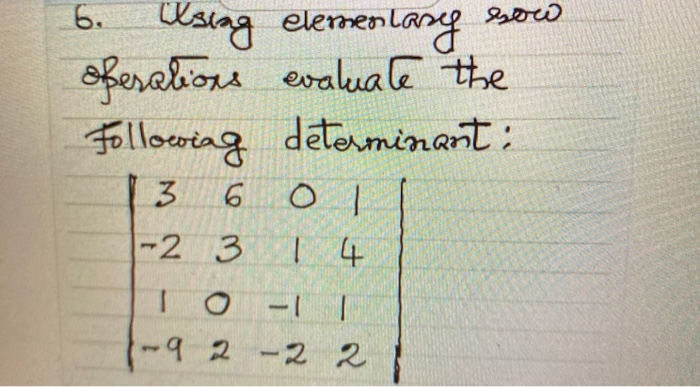 6. Using elementary row
operations evaluate the
following determinant:
3 6 0 1
-2 3 1 4
1 0 -1 1
-9 2 -2 2